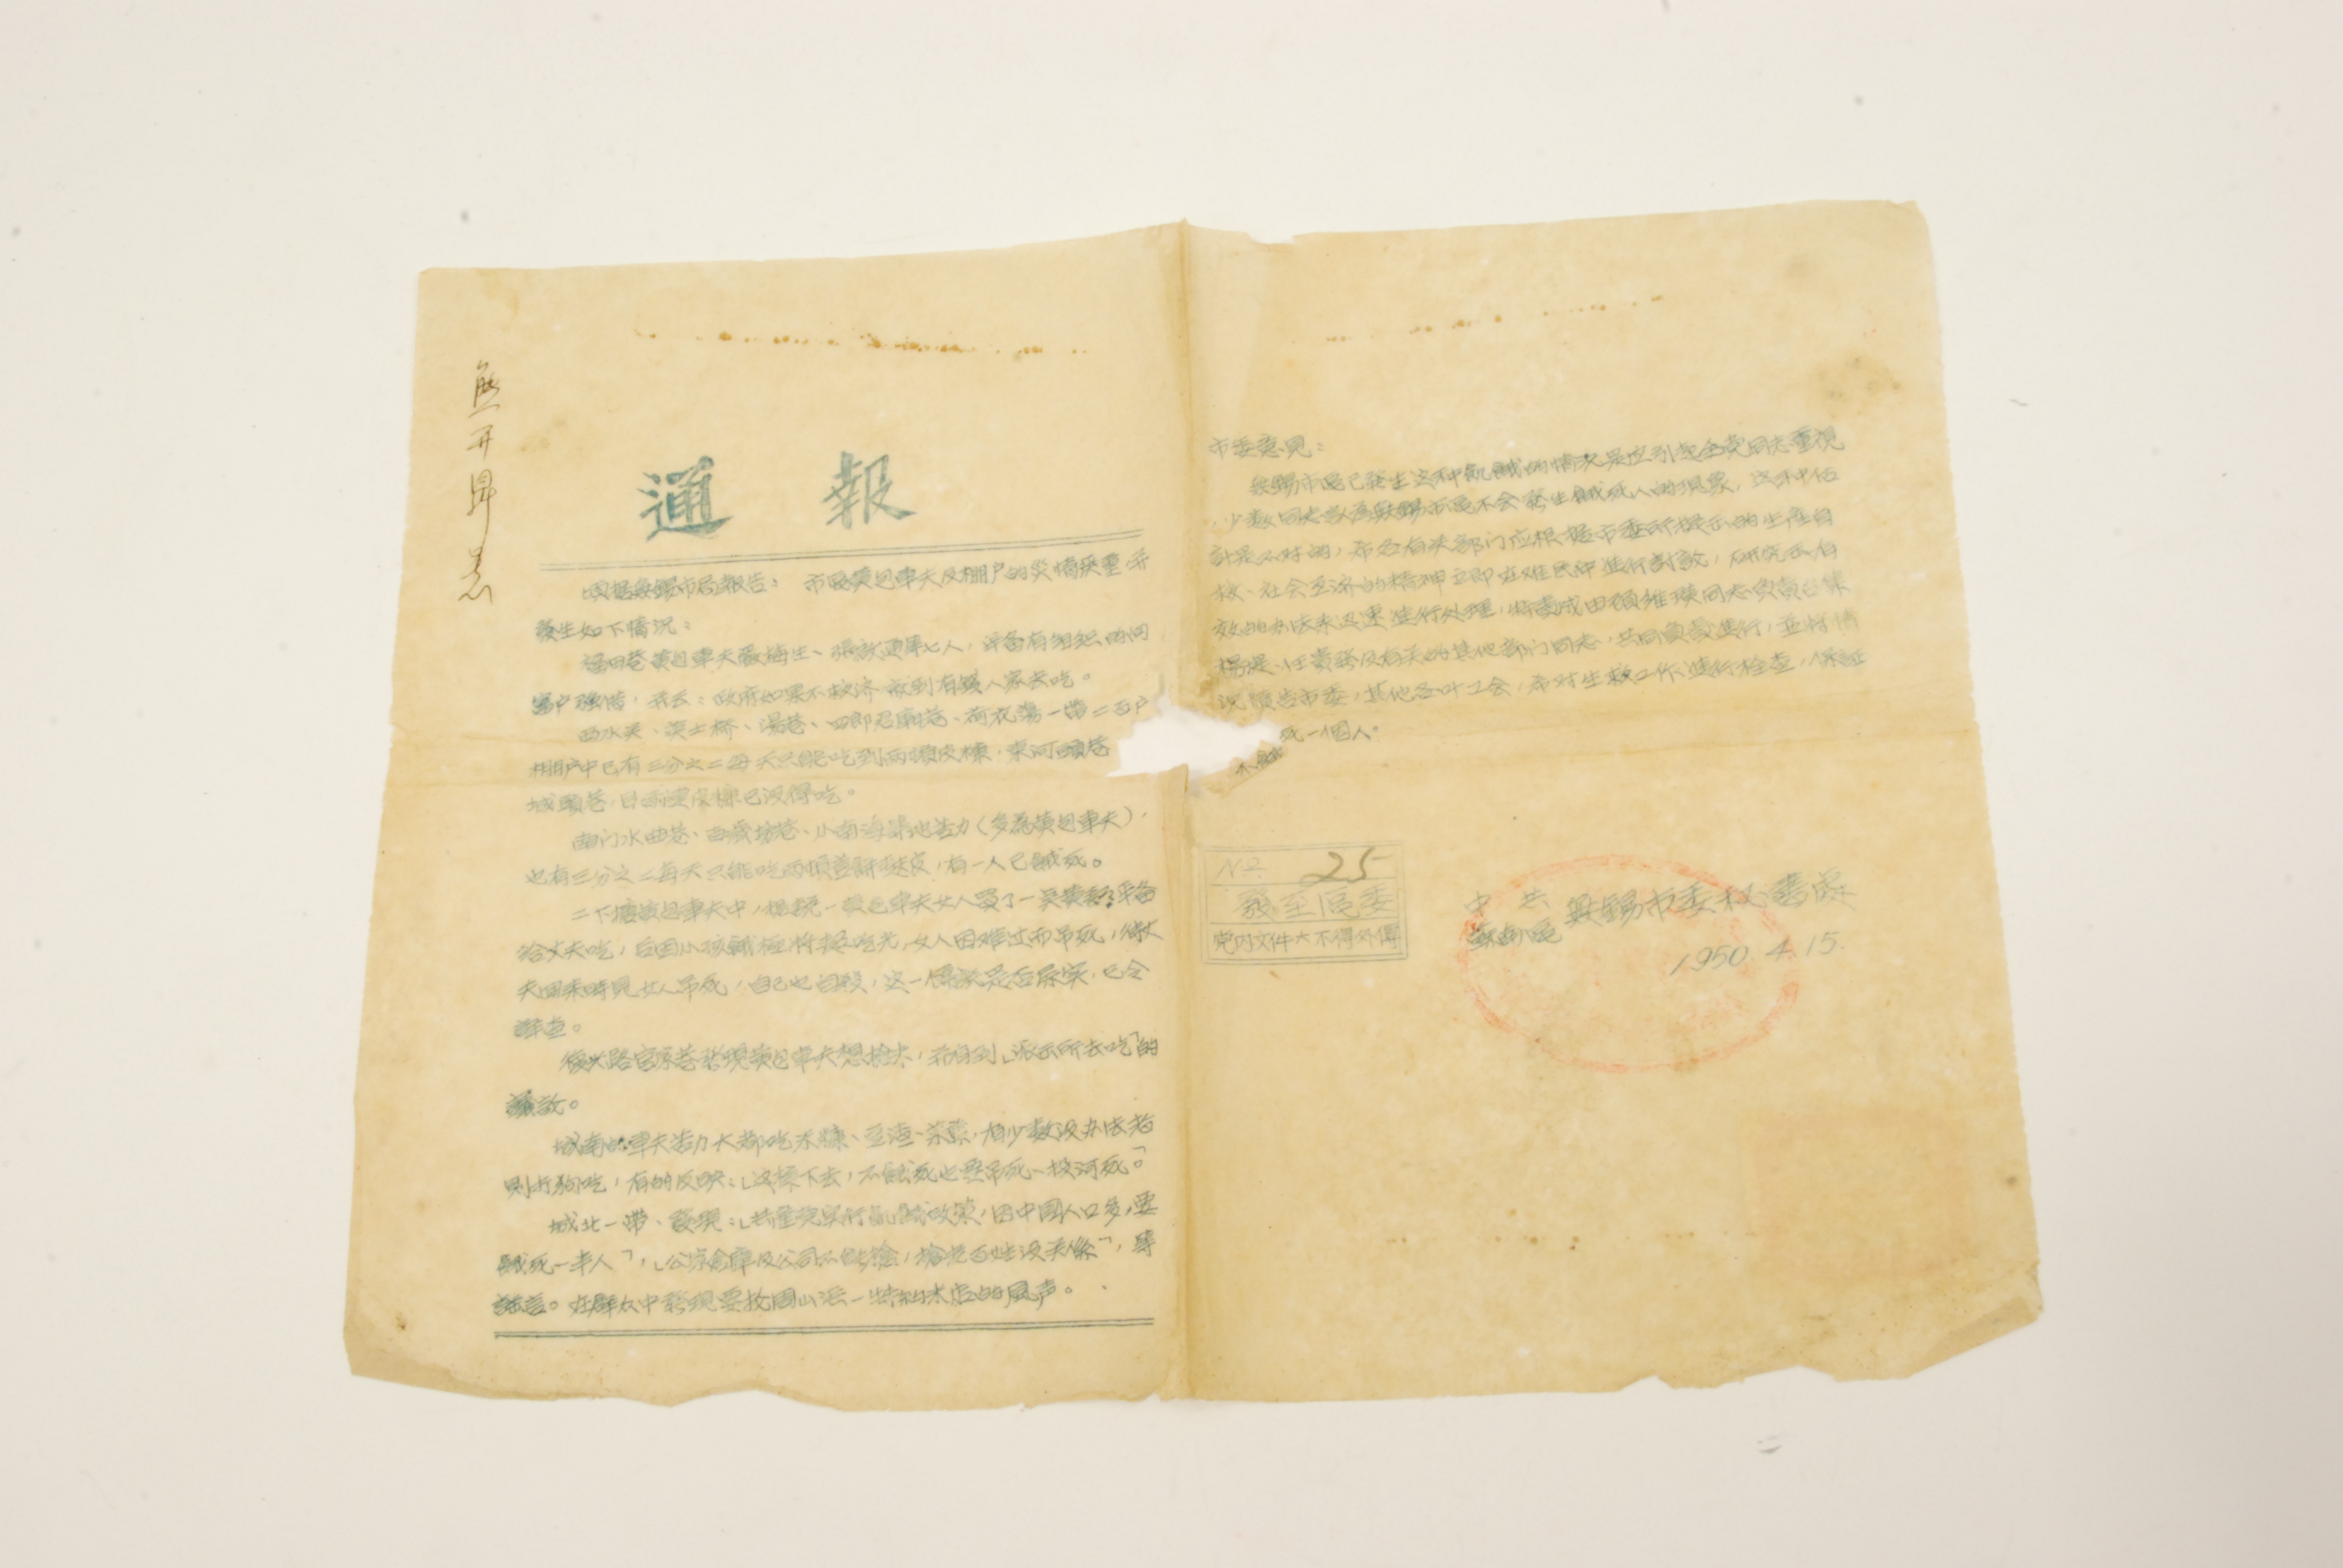 通報
頃據無錫市局報告：市區黃包車夫及棚户的災情疾重，并
發生如下情况：
黃包車夫梅生、張等七人，準备有组织的向
富户强借，并云：政府如果不救济就到有錢人家去吃。
西水关、湯巷、四郎君廟巷、荷衣蕩一帶二百户
棚户中已有三分之二每天只能吃到兩頓皮糠，東河頭巷
城頭巷，目前連皮糠已没得吃。
南门水曲巷、西巷、小南海等地苦力（多為黃包車夫），
也有三分之二每天只能吃两頓皮，有一人已餓死。
二下塘黃包車夫中，據説一黃包車夫女人買了一準备
给丈夫吃，后因小孩餓極将其吃光，女人因难过而吊死，丈
夫回来時見女人吊死，自己也自殺，这一傳説是否属实，已令
詳查。
復兴路發現黃包車夫想搶米，并有到「派出所去吃」的
説。
城南的車夫苦力大都吃米糠、豆渣、菜，有少數没办法者
則打狗吃，有的反映：「这樣下去，不餓死也要吊死、投河死。」
城北一带、發現：「共產党实行飢餓政策，因中國人口多，要
餓死一半人」，「公家倉庫及公司不能搶，搶老百姓没关係」，等
謠言。在群众中發現要一些米店的風声。
熊天荆志
市委意見：
無錫市區已發生这种飢餓的情况是应引起全党同志重視
，少数同志以為無錫市區不会發生餓死人的現象，这种估
計是不对的，希各有关部门应根据市委所提示的生產自
救、社会互济的精神立即在难民中進行討論，研究出有
效的办法来迅速進行处理，特責成由顧維同志負責
及有关的其他部门同志，共同負責進行，並将情
况報告市委，其他各工会，希对生救工作進行检查，保証
不餓死一個人。
No. 25
發至區委
党内文件 不得外傳
中共蘇南區無錫市委秘書處
1950.4.15.